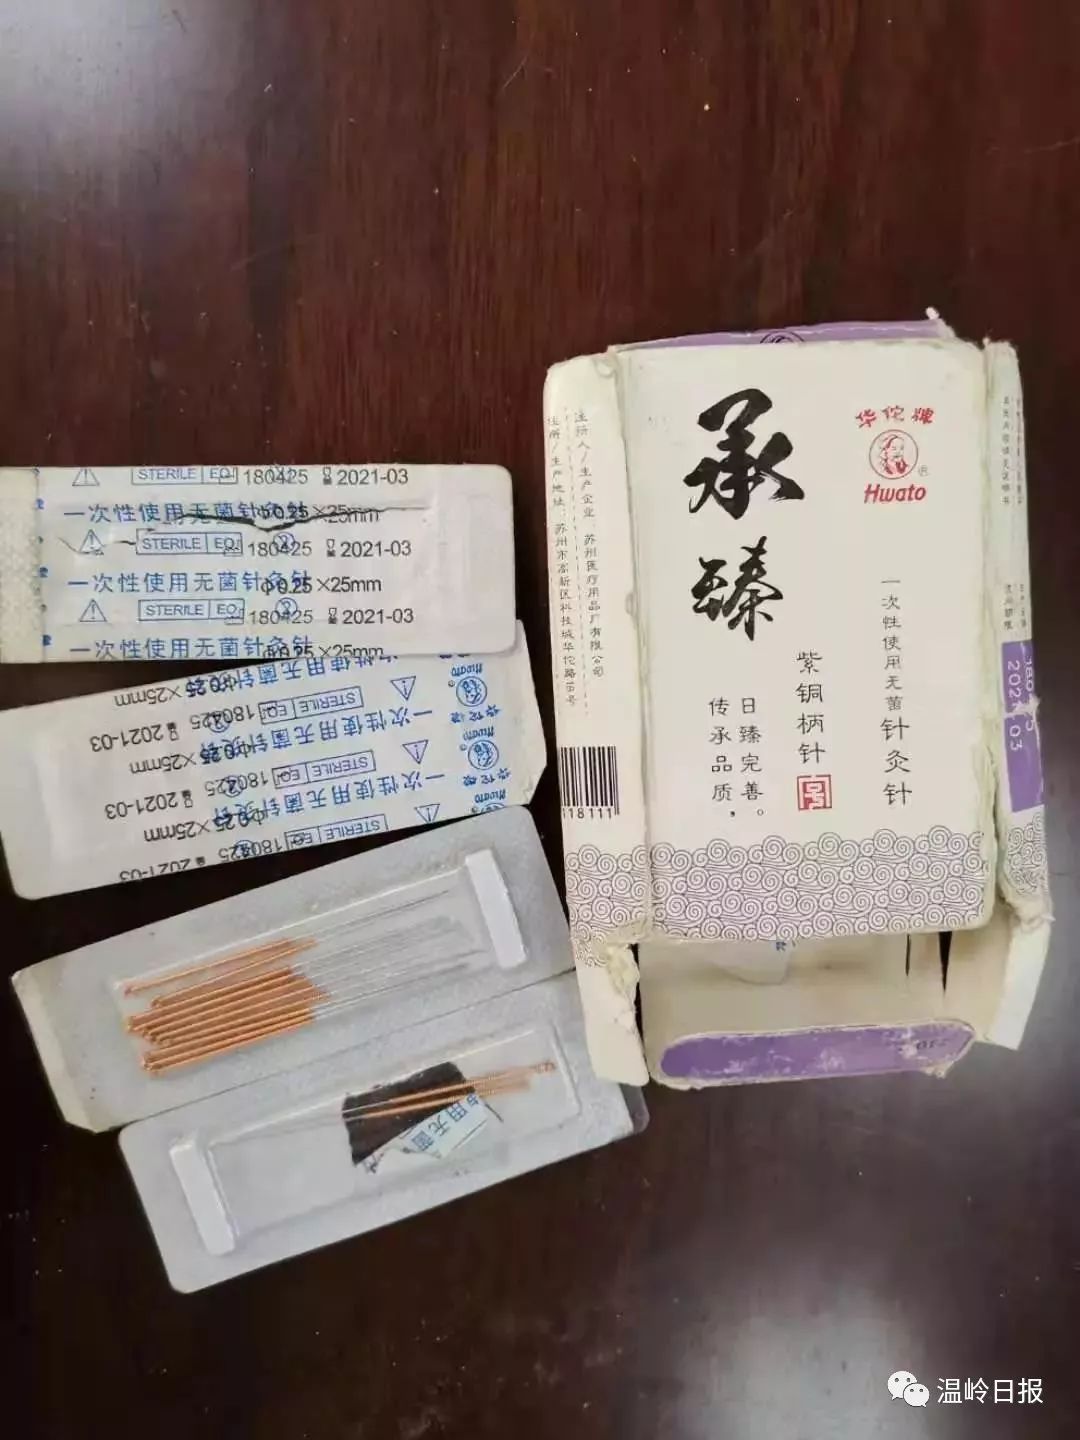 STERILE EO 180425 2021-03
一次性使用无菌针灸针 Φ0.25×25mm
STERILE EO 180425 2021-03
一次性使用无菌针灸针 Φ0.25×25mm
STERILE EO 180425 2021-03
一次性使用无菌针灸针 Φ0.25×25mm
一次性使用无菌针灸针 Φ0.25×25mm
Hwato
STERILE EO 180425 2021-03
华佗牌
一次性使用无菌针灸针 Φ0.25×25mm
Hwato
STERILE EO 180425 2021-03
华佗牌
一次性使用无菌针灸针 Φ0.25×25mm
Hwato
STERILE EO 180425 2021-03
华佗牌
用无菌
注册人/生产企业：苏州医疗用品厂有限公司
住所/生产地址：苏州市高新区科技城华佗路18号
118111
承臻
华佗牌
Hwato
一次性使用无菌针灸针
紫铜柄针
日臻完善。
传承品质，
2021 03
温岭日报